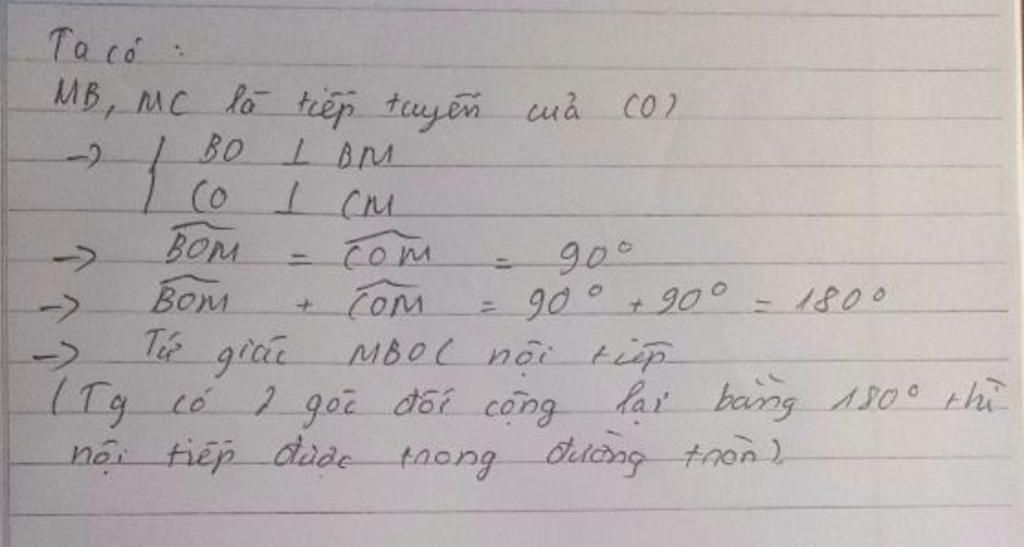 Ta có :
MB, MC là tiếp tuyến cuả (O)
→ { BO ⊥ BM
CO ⊥ CM
→ \widehat{BOM} = \widehat{COM} = 90°
→ \widehat{BOM} + \widehat{COM} = 90° + 90° = 180°
→ Tứ giác MBOC nội tiếp
(Tg có 2 góc đối cộng lại bằng 180° thì
nội tiếp được trong đường tròn)